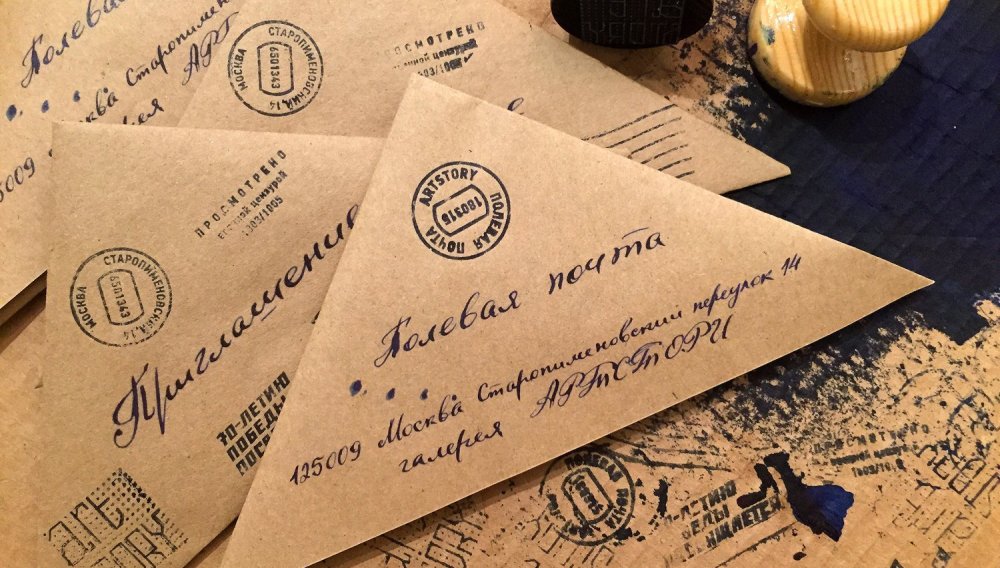 Полевая
Москва Старопименовский
галерея АРТ
МОСКВА СТАРОПИМЕНОВСКИЙ, 14
6501343
ПРОСМОТРЕНО
военной цензурой
1303/1005
ПРОСМОТРЕНО
военной цензурой
1303/1005
МОСКВА СТАРОПИМЕНОВСКИЙ, 14
6501343
Приглашение
70-ЛЕТИЮ
ПОБЕДЫ
art
STORY
ARTSTORY ПОЛЕВАЯ ПОЧТА
180316
Полевая почта
125009 Москва Старопименовский переулок 14
галерея АРТСТОРИ
ПОЛЕВАЯ ПОЧТА
70-ЛЕТИЮ
ПОБЕДЫ
ПОСВЯЩАЕТСЯ
ПРОСМОТРЕНО